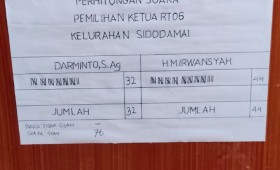 PERHITUNGAN SUARA
PEMILIHAN KETUA RT06
KELURAHAN SIDODAMAI
DARMINTO, S.Ag H.MIRWANSYAH
32 44
JUMLAH 32 JUMLAH 44
76